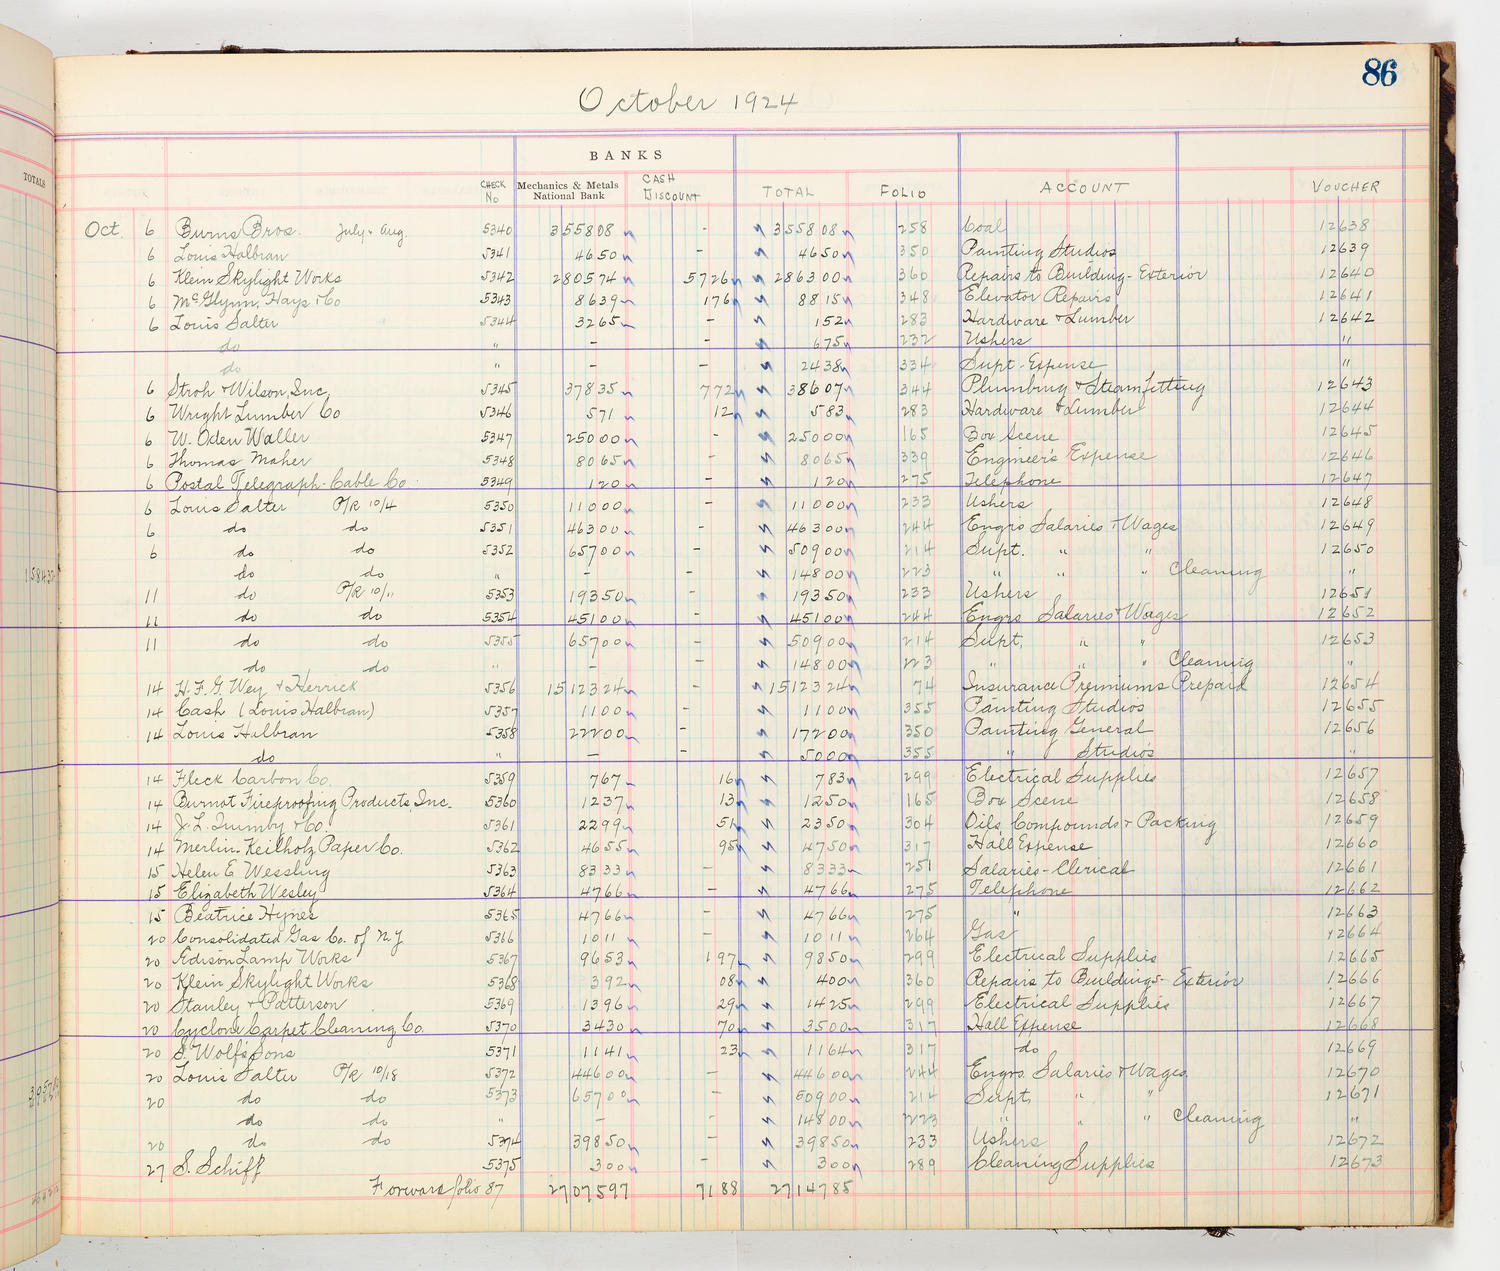 86
October 1924
TOTALS
BANKS
CHECK No Mechanics & Metals National Bank CASH DISCOUNT TOTAL FOLIO ACCOUNT VOUCHER
Oct. 6 Burns Bros. July & Aug. 5340 355808 - 355808 258 Coal 12638
6 Louis Halbran 5341 4650 - 4650 350 Painting Studios 12639
6 Klein Skylight Works 5342 280574 5726 286300 360 Repairs to Building - Exterior 12640
6 McGlynn, Hays & Co 5343 8639 176 8815 348 Elevator Repairs 12641
6 Louis Salter 5344 3265 - 152 283 Hardware & Lumber 12642
do " - - 675 232 Ushers "
do " - - 2438 334 Supt - Expense "
6 Stroh & Wilson, Inc 5345 37835 772 38607 344 Plumbing & Steamfitting 12643
6 Wright Lumber Co 5346 571 12 583 283 Hardware & Lumber 12644
6 W. Oden Waller 5347 25000 - 25000 165 Box Scene 12645
6 Thomas Maher 5348 8065 - 8065 339 Engineer's Expense 12646
6 Postal Telegraph-Cable Co 5349 120 - 120 275 Telephone 12647
6 Louis Salter P/R 10/4 5350 11000 - 11000 233 Ushers 12648
6 do do 5351 46300 - 46300 244 Engrs Salaries & Wages 12649
6 do do 5352 65700 - 50900 214 Supt. " " 12650
do do " - - 14800 223 " " " Cleaning "
11 do P/R 10/11 5353 19350 - 19350 233 Ushers 12651
11 do do 5354 45100 - 45100 244 Engrs Salaries & Wages 12652
11 do do 5355 65700 - 50900 214 Supt. " " 12653
do do " - - 14800 223 " " " Cleaning "
14 H. F. G. Wey & Herrick 5356 1512324 - 1512324 74 Insurance Premiums Prepaid 12654
14 Cash (Louis Halbran) 5357 1100 - 1100 355 Painting Studios 12655
14 Louis Halbran 5358 22200 - 17200 350 Painting General 12656
do " - - 5000 355 " Studios "
14 Fleck Carbon Co. 5359 767 16 783 299 Electrical Supplies 12657
14 Burnot Fireproofing Products, Inc. 5360 1237 13 1250 165 Box Scene 12658
14 J. L. Quimby & Co. 5361 2299 51 2350 304 Oils, Compounds & Packing 12659
14 Merlin-Keilholz Paper Co. 5362 4655 95 4750 317 Hall Expense 12660
15 Helen E Wessling 5363 8333 - 8333 251 Salaries-Clerical 12661
15 Elizabeth Wesley 5364 4766 - 4766 275 Telephone 12662
15 Beatrice Hynes 5365 4766 - 4766 275 " 12663
20 Consolidated Gas Co. of N.Y. 5366 1011 - 1011 264 Gas 12664
20 Edison Lamp Works 5367 9653 197 9850 299 Electrical Supplies 12665
20 Klein Skylight Works 5368 392 08 400 360 Repairs to Buildings - Exterior 12666
20 Stanley & Patterson 5369 1396 29 1425 299 Electrical Supplies 12667
20 Cyclone Carpet Cleaning Co. 5370 3430 70 3500 317 Hall Expense 12668
20 S. Wolf's Sons 5371 1141 23 1164 317 do 12669
20 Louis Salter P/R 10/18 5372 44600 - 44600 244 Engrs Salaries & Wages 12670
20 do do 5373 65700 - 50900 214 Supt. " " 12671
do do " - - 14800 223 " " " Cleaning "
20 do do 5374 39850 - 39850 233 Ushers 12672
27 S. Schiff 5375 300 - 300 289 Cleaning Supplies 12673
Forward folio 87 2707597 7188 2714785